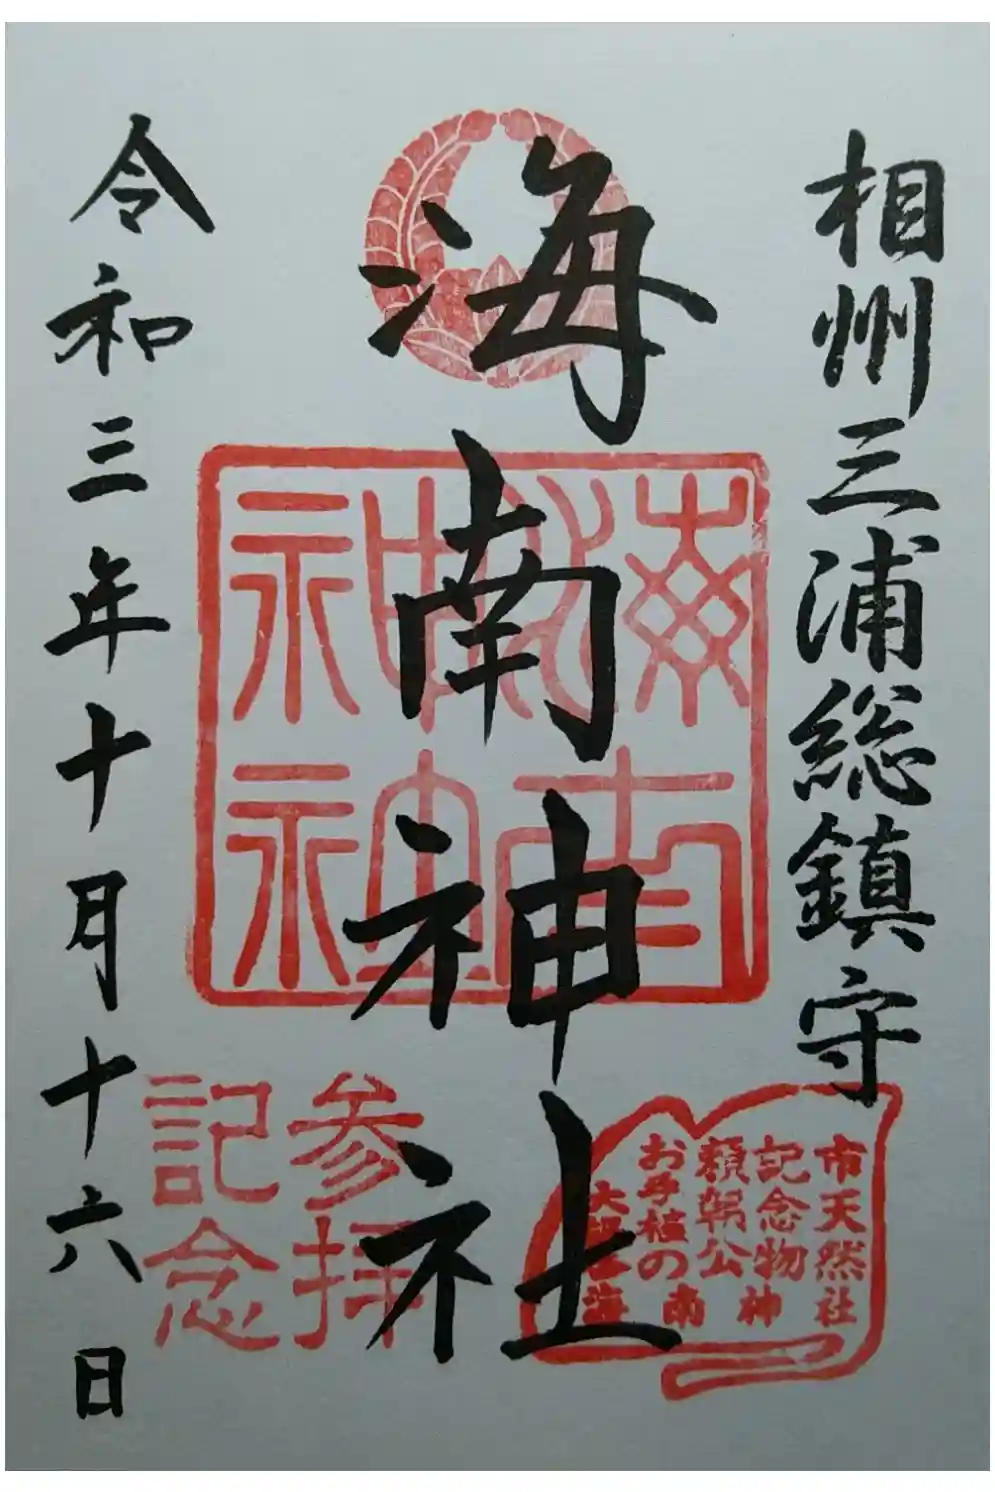 相州三浦総鎮守
海南神社
令和三年十月十六日
海南
神社
参拝
記念
市天然
記念物
頼朝公
お手植の
海南神社